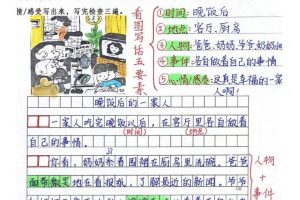 情/感受写出来,写完检查三遍。
看图写话五要素
①时间:晚饭后
②地点:客厅、厨房
③人物:爸爸、妈妈、爷爷、奶奶
④事件:各自做着自己的事情
⑤心情/感受:这真是幸福的一家人啊!
晚饭后的一家人
一家人吃完晚饭以后,在客厅里各自做着
(时间) (地点)
自己的事情。
你看,妈妈系着围裙在厨房里洗碗,爸爸
面带微笑地在看报纸,了解最近的新闻。爷爷
人物
+
事件